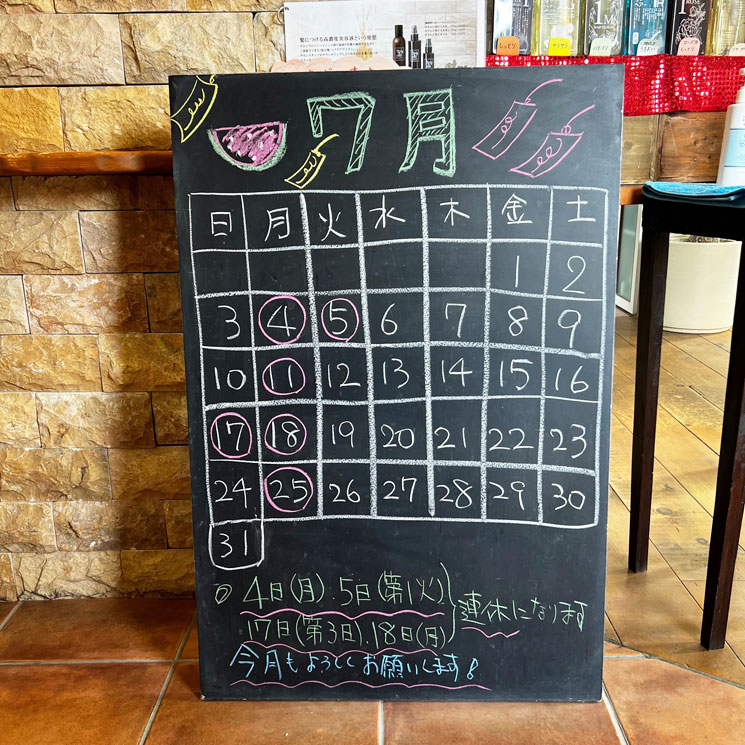 髪につける高濃度美容液という発想
7月
日 月 火 水 木 金 土
1 2
3 4 5 6 7 8 9
10 11 12 13 14 15 16
17 18 19 20 21 22 23
24 25 26 27 28 29 30
31
4日(月).5日(第1火)
17日(第3日).18日(月)
連休になります
今月もよろしくお願いします!